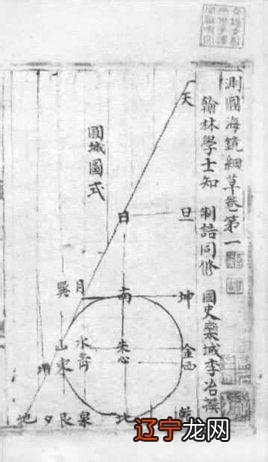 測圓海鏡細草卷第一
翰林學士知 制誥同修 國史欒城李冶撰
圓城圖式
天
日
旦
巽
月
南
坤
山
水
朱
心
金
地
夕
艮
泉
北
乾
辽宁龙网